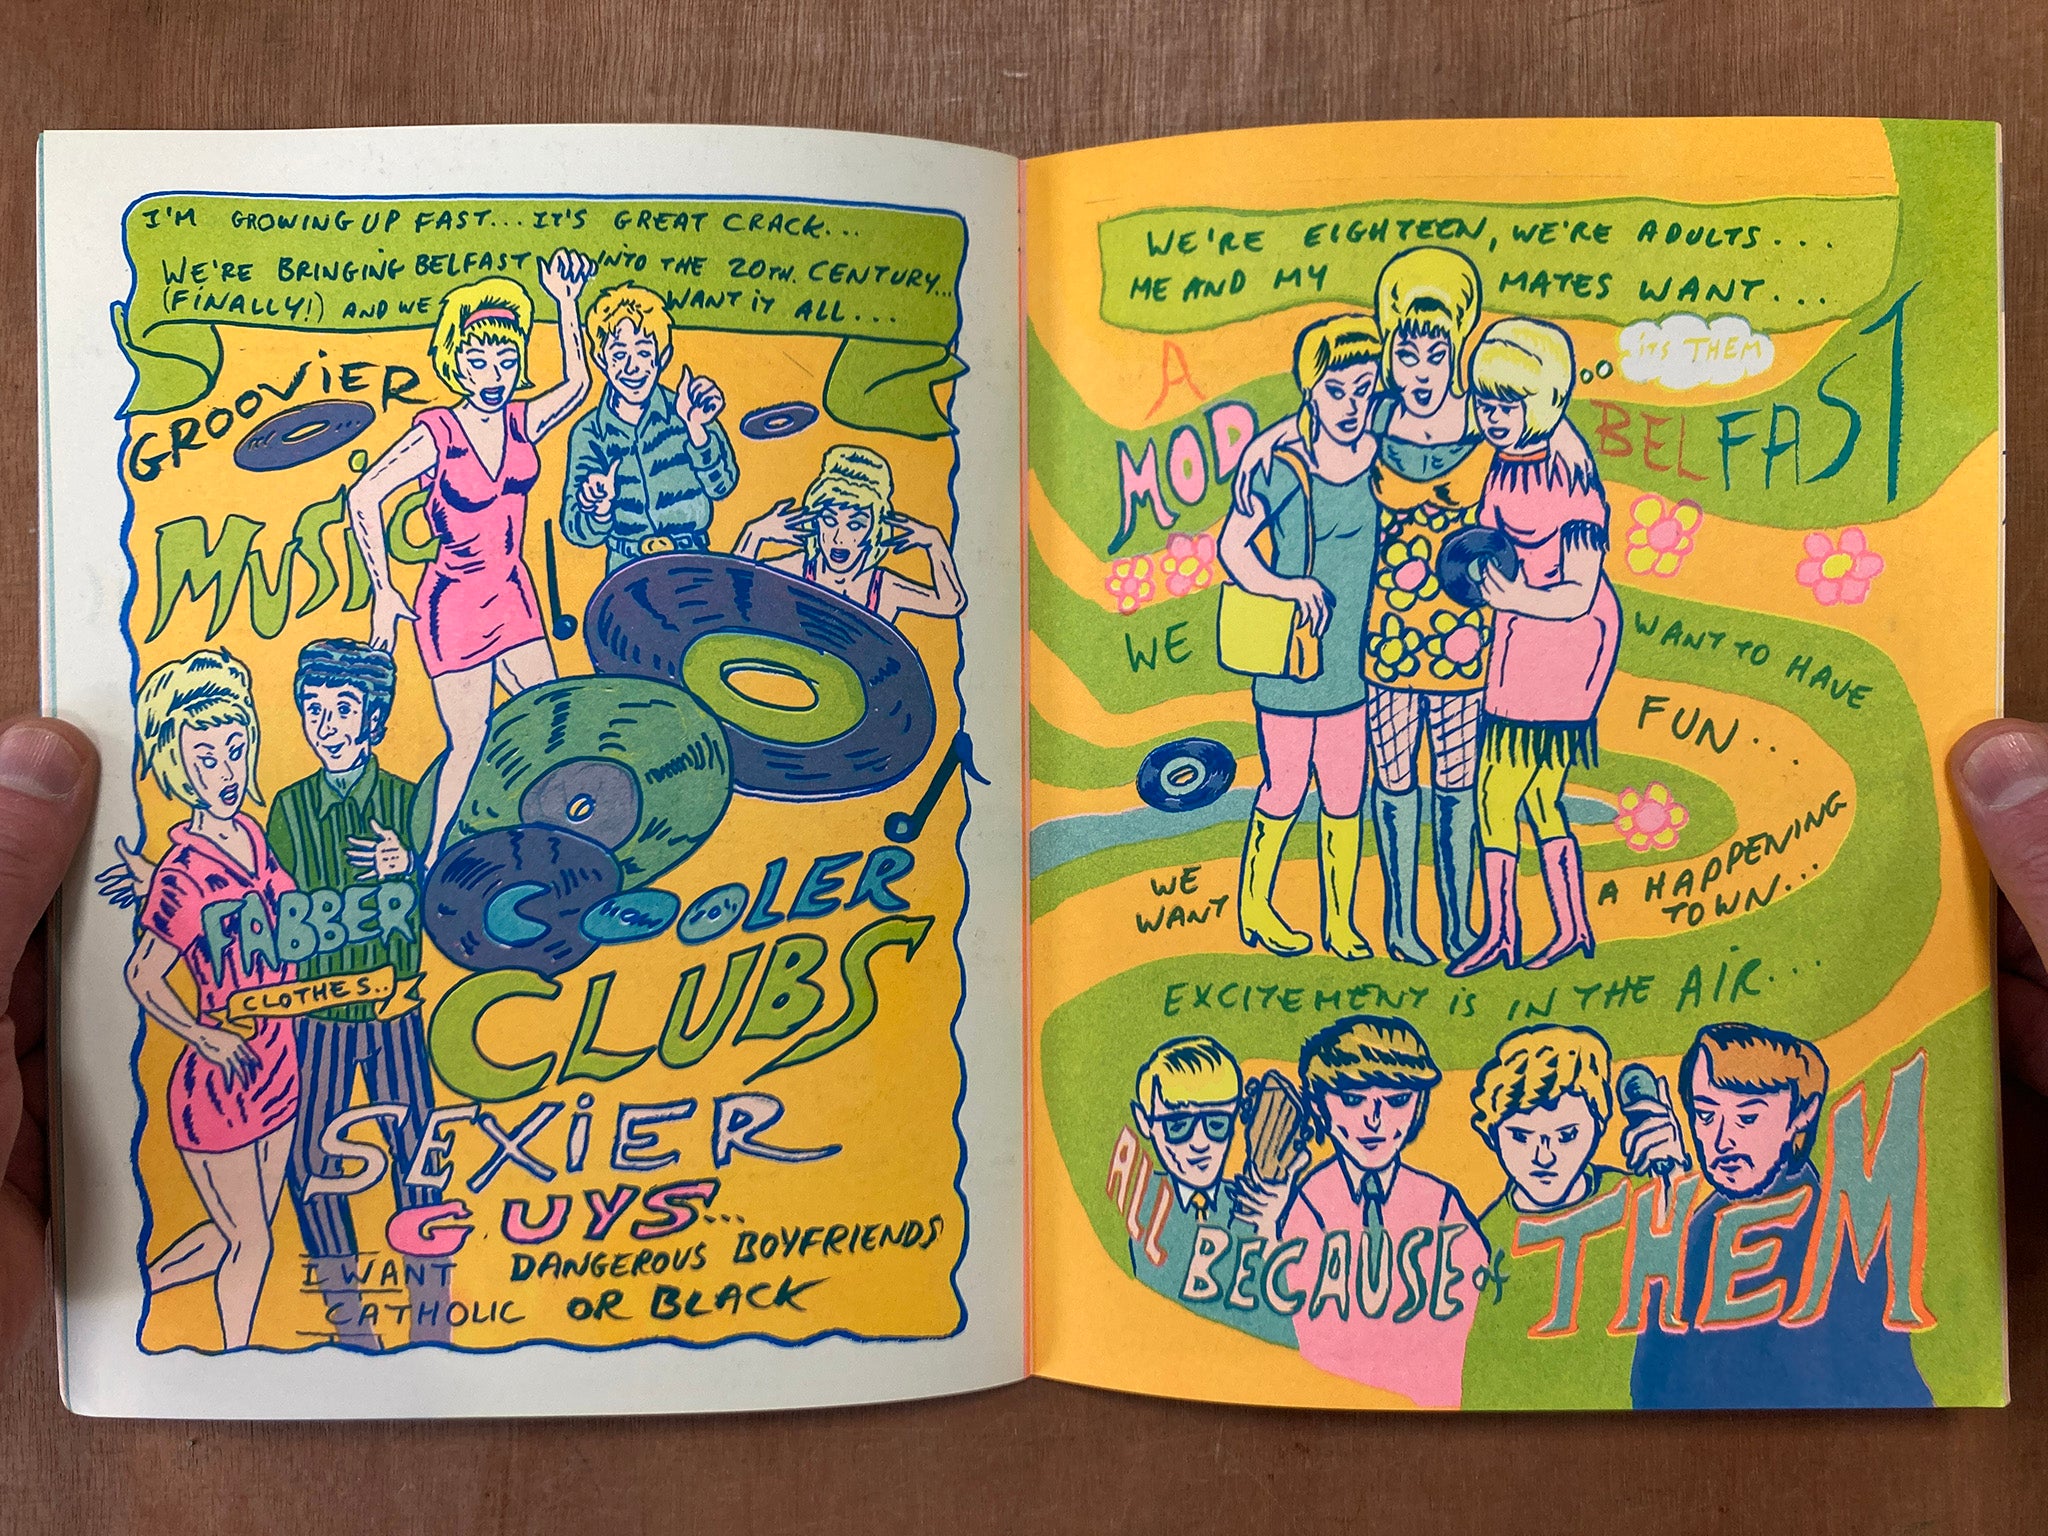 I'M GROWING UP FAST... IT'S GREAT CRACK...
WE'RE BRINGING BELFAST INTO THE 20TH. CENTURY...
(FINALLY!) AND WE WANT IT ALL...
GROOViER
MUSiC
FABBER
CLOTHES..
COOLER
CLUBS
SEXiER
GUYS...
I WANT DANGEROUS BOYFRIENDS
CATHOLIC OR BLACK
WE'RE EIGHTEEN, WE'RE ADULTS...
ME AND MY MATES WANT...
iTS THEM
A
MOD BELFAST
WE WANT TO HAVE
FUN...
WE WANT
A HAPPENING
TOWN...
EXCITEMENT iS IN THE AIR...
ALL BECAUSE of THEM